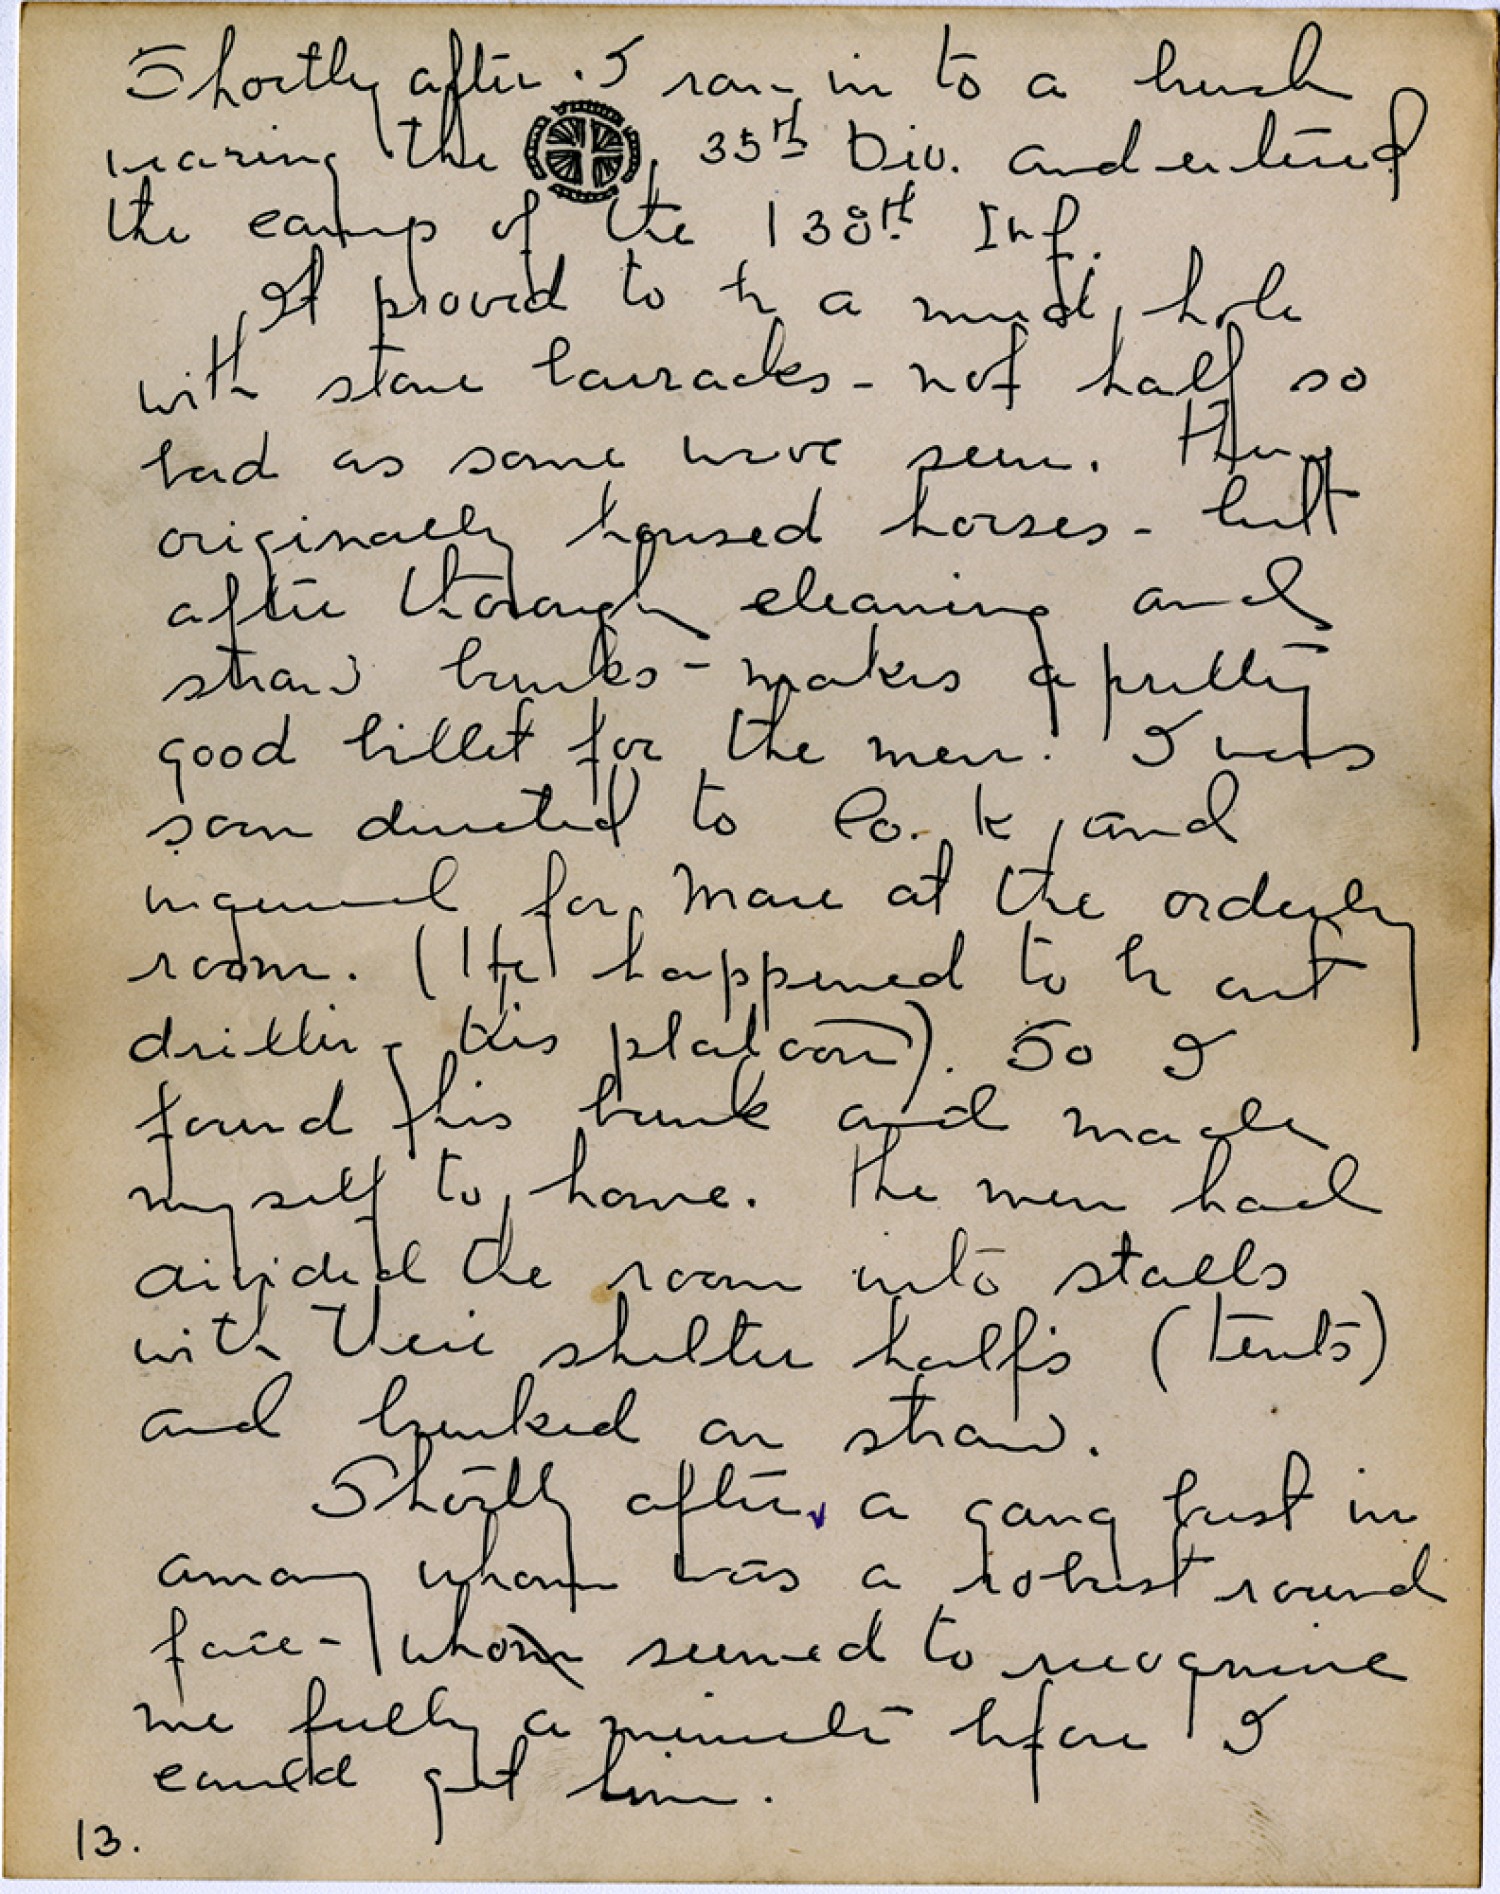 Shortly after. I ran in to a bunch
wearing the 35th Div. and entered
the camp of the 138th Inf.
It proved to be a mud hole
with stone barracks - not half so
bad as some weve seen. They
originally housed horses - but
after thorough cleaning and
straw bunks - makes a pretty
good billet for the men. I was
soon directed to Co. K, and
inquired for at the orderly
room. (He happened to be out
drilling his platoon). So I
found his bunk and made
myself to home. The men had
divided the room into stalls
with their shelter halfs (tents)
and bunked on straw.
Shortly after, a gang bust in
among whom was a robust round
face - whom seemed to recognize
me fully a minute before I
could get him.
13.